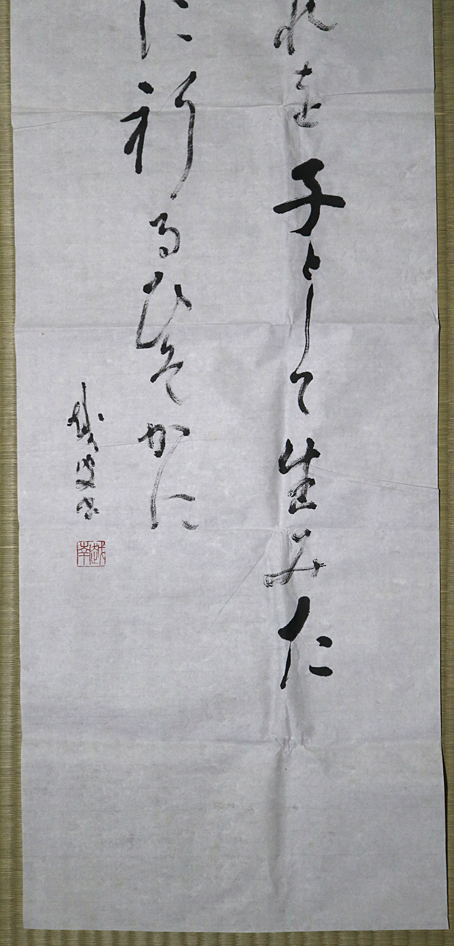 れを子として生みた
に祈るひそかに